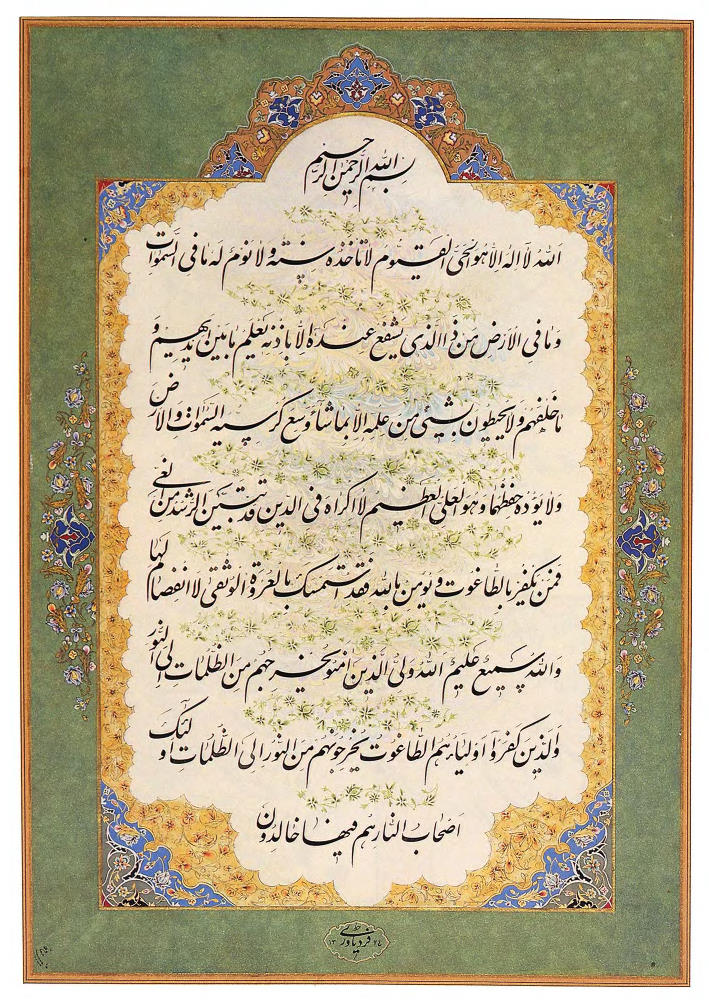 بسم الله الرحمن الرحیم
الله لا اله الا هو الحی القیوم لا تاخذه سنة و لا نوم له ما فی السموات
و ما فی الارض من ذا الذی یشفع عنده الا باذنه یعلم ما بین ایدیهم و
ما خلفهم و لا یحیطون بشیئ من علمه الا بما شاء وسع کرسیه السموات و الارض
و لا یوده حفظهما و هو العلی العظیم لا اکراه فی الدین قد تبین الرشد من الغی
فمن یکفر بالطاغوت و یومن بالله فقد استمسک بالعروة الوثقی لا انفصام لها
و الله سمیع علیم الله ولی الذین امنو یخرجهم من الظلمات الی النور
و الذین کفروا اولیاء هم الطاغوت یخرجونهم من النور الی الظلمات اولئک
اصحاب النار هم فیها خالدون